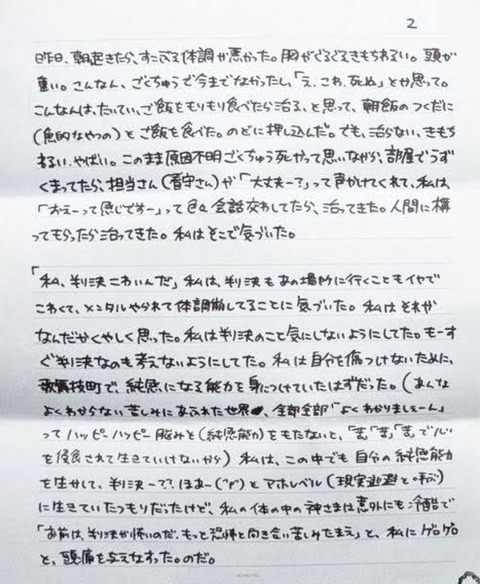 2
昨日、朝起きたら、すこぶる体調が悪かった。胸がぐるぐるきもちわるい。頭が
重い。こんなん、ごくちゅうで今までなかったし、「え、これ、死ぬ」とか思って。
こんなんは、たいてい、ご飯をもりもり食べたら治る、と思って、朝飯のつくだに
(魚的なやつの)とご飯を食べた。のどに押し込んだ。でも、治らない、きもち
わるい、やばい。このまま原因不明ごくちゅう死やって思いながら、部屋でうず
くまってたら、担当さん(看守さん)が「大丈夫ー?」って声かけてくれて、私は、
「おえーって感じですー」って色々会話交わしてたら、治ってきた。人間に構
ってもらったら治ってきた。私はそこで気づいた。
「私、判決こわいんだ」私は、判決もあの場所に行くこともイヤで
こわくて、メンタルやられて体調崩してることに気づいた。私はそれが
なんだかくやしく思った。私は判決のこと気にしないようにしてた。もーす
ぐ判決なのも考えないようにしてた。私は自分を傷つけないために、
歌舞伎町で、純感になる能力を身につけていたはずだった。(あんな
よくわからない苦しみにあふれた世界、全部全部「よくわかりましぇーん」
ってハッピーハッピー脳みそ(純感能力)をもたないと、「苦」「苦」「苦」で心
を侵食されて生きていけないから)私は、この中でも自分の純感能力
を生かして、判決ー??ほあー(°p°)とアホレベル(現実逃避と
に生きていたつもりだったけど、私の体の中の神さまは意外にも冷酷で
「お前は、判決が怖いのだ。もっと恐怖と向き合い苦しみたまえ」と、私にゲロゲロ
と、頭痛を与えなすった。のだ。